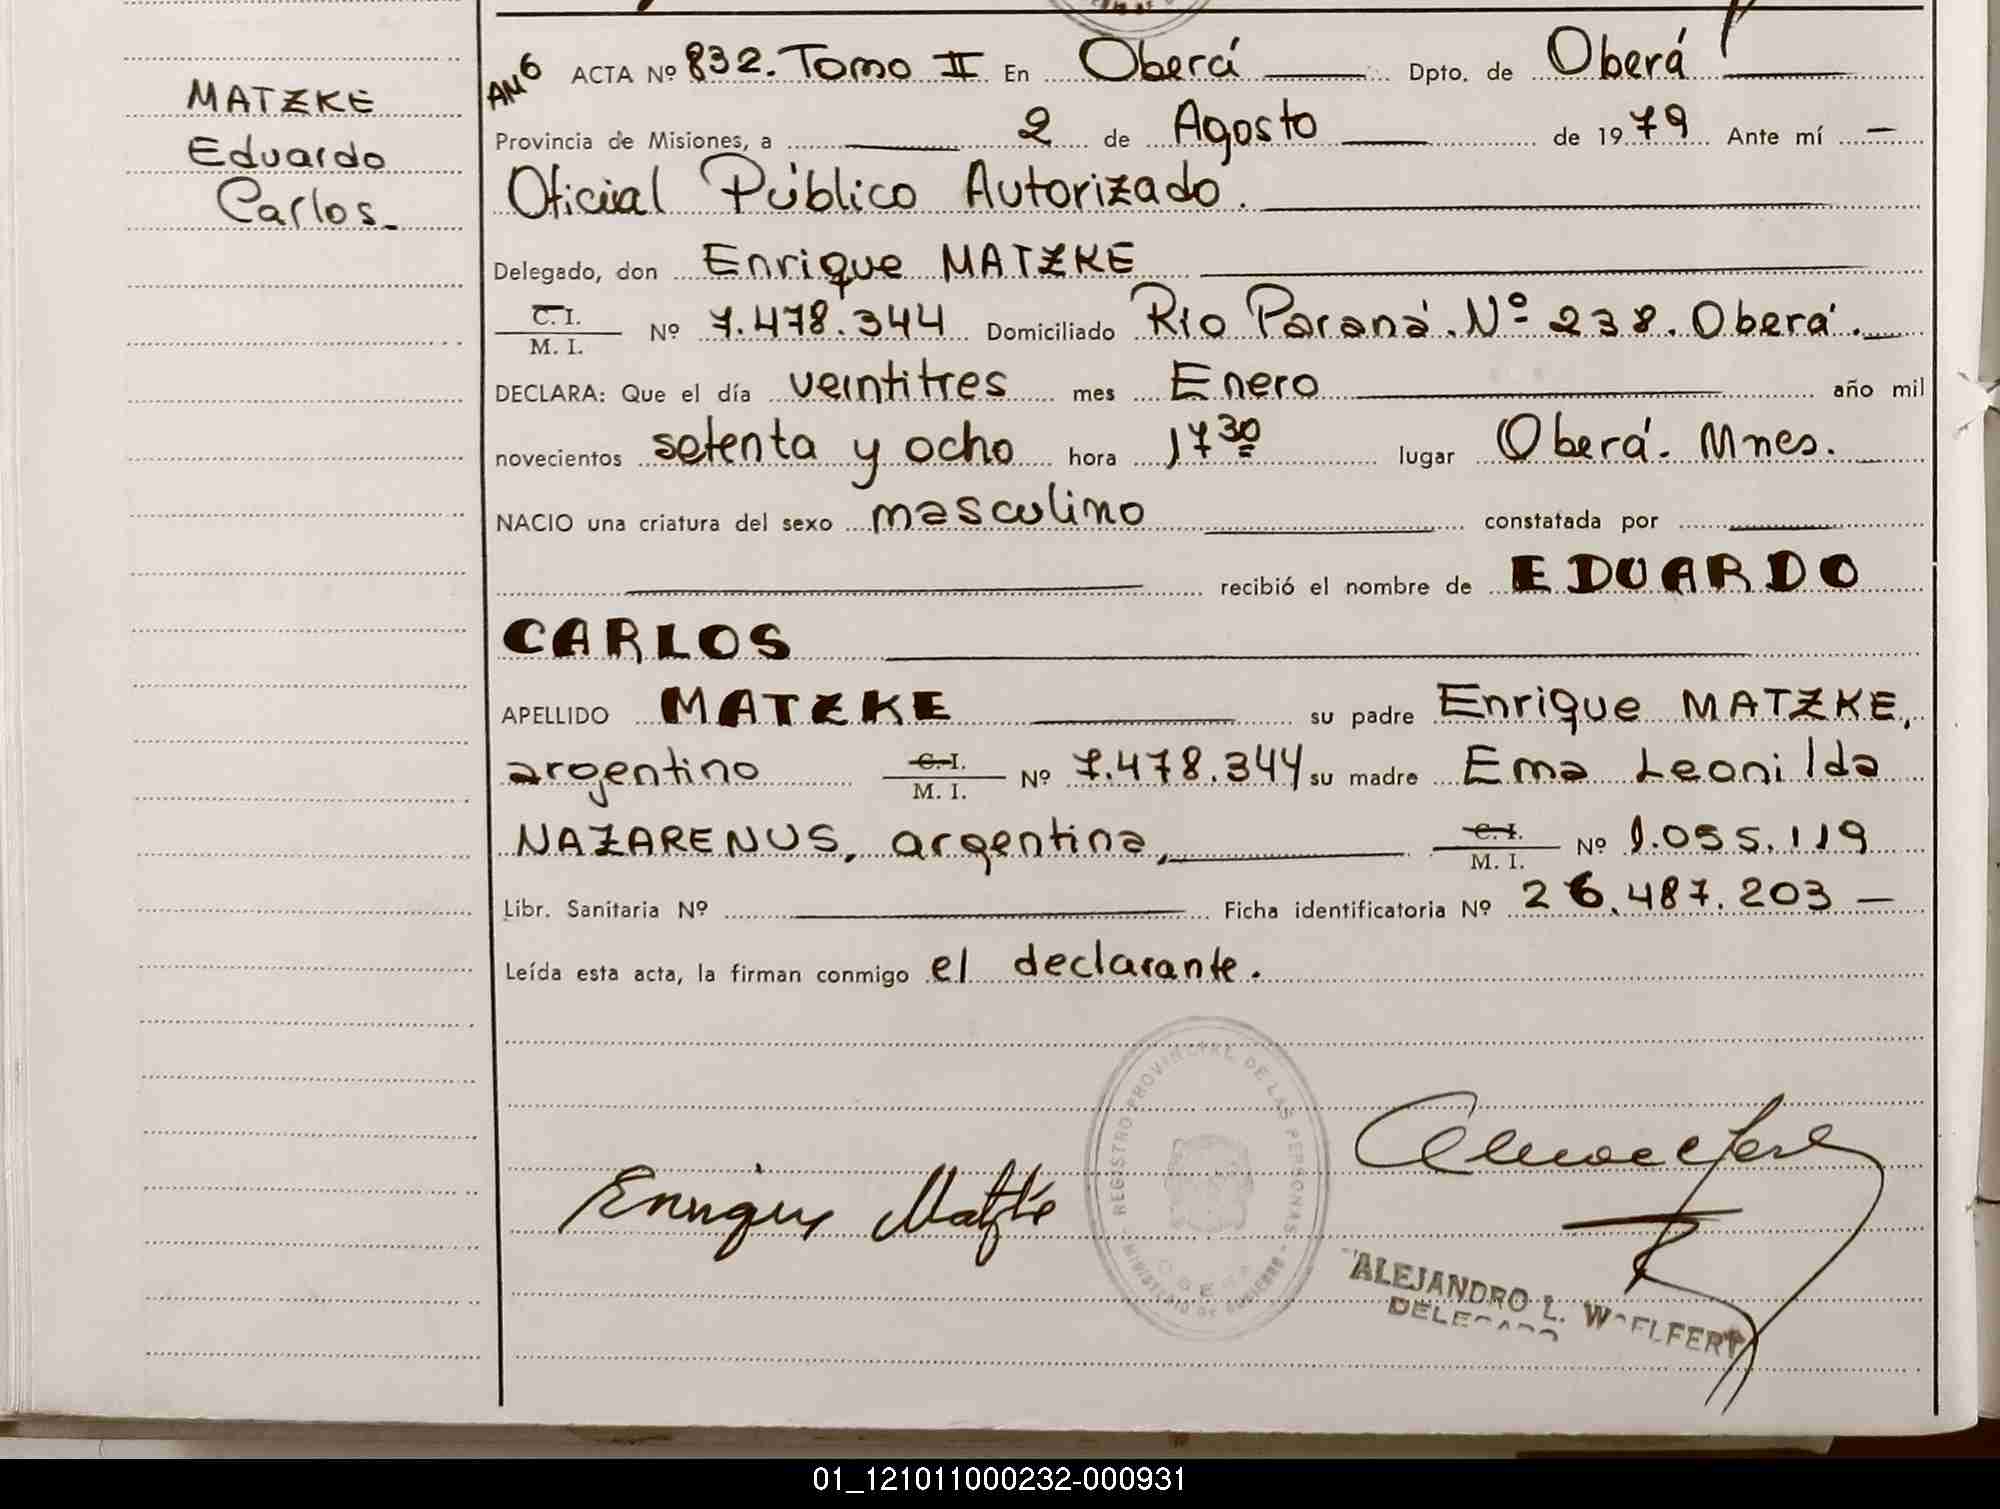 MATZKE
Eduardo
Carlos.
AM6 ACTA Nº 832. Tomo II En Oberá Dpto. de Oberá
Provincia de Misiones, a 2 de Agosto de 1979 Ante mí
Oficial Público Autorizado.
Delegado, don Enrique MATZKE
C. I.
M. I.
Nº 7.478.344 Domiciliado Río Paraná. Nº 238. Oberá.
DECLARA: Que el día veintitres mes Enero año mil
novecientos setenta y ocho hora 17 30 lugar Oberá. Mnes.
NACIO una criatura del sexo masculino constatada por
recibió el nombre de EDUARDO
CARLOS
APELLIDO MATZKE su padre Enrique MATZKE,
argentino C. I. Nº 7.478.344 su madre Ema Leonilda
M. I.
NAZARENUS, argentina, C. I. Nº 1.055.119
M. I.
Libr. Sanitaria Nº Ficha identificatoria Nº 26.487.203
Leída esta acta, la firman conmigo el declarante.
REGISTRO PROVINCIAL DE LAS PERSONAS
MINISTERIO DE GOBIERNO
Enrique Matzke
ALEJANDRO L. WOELFERT
DELEGADO
01_121011000232-000931